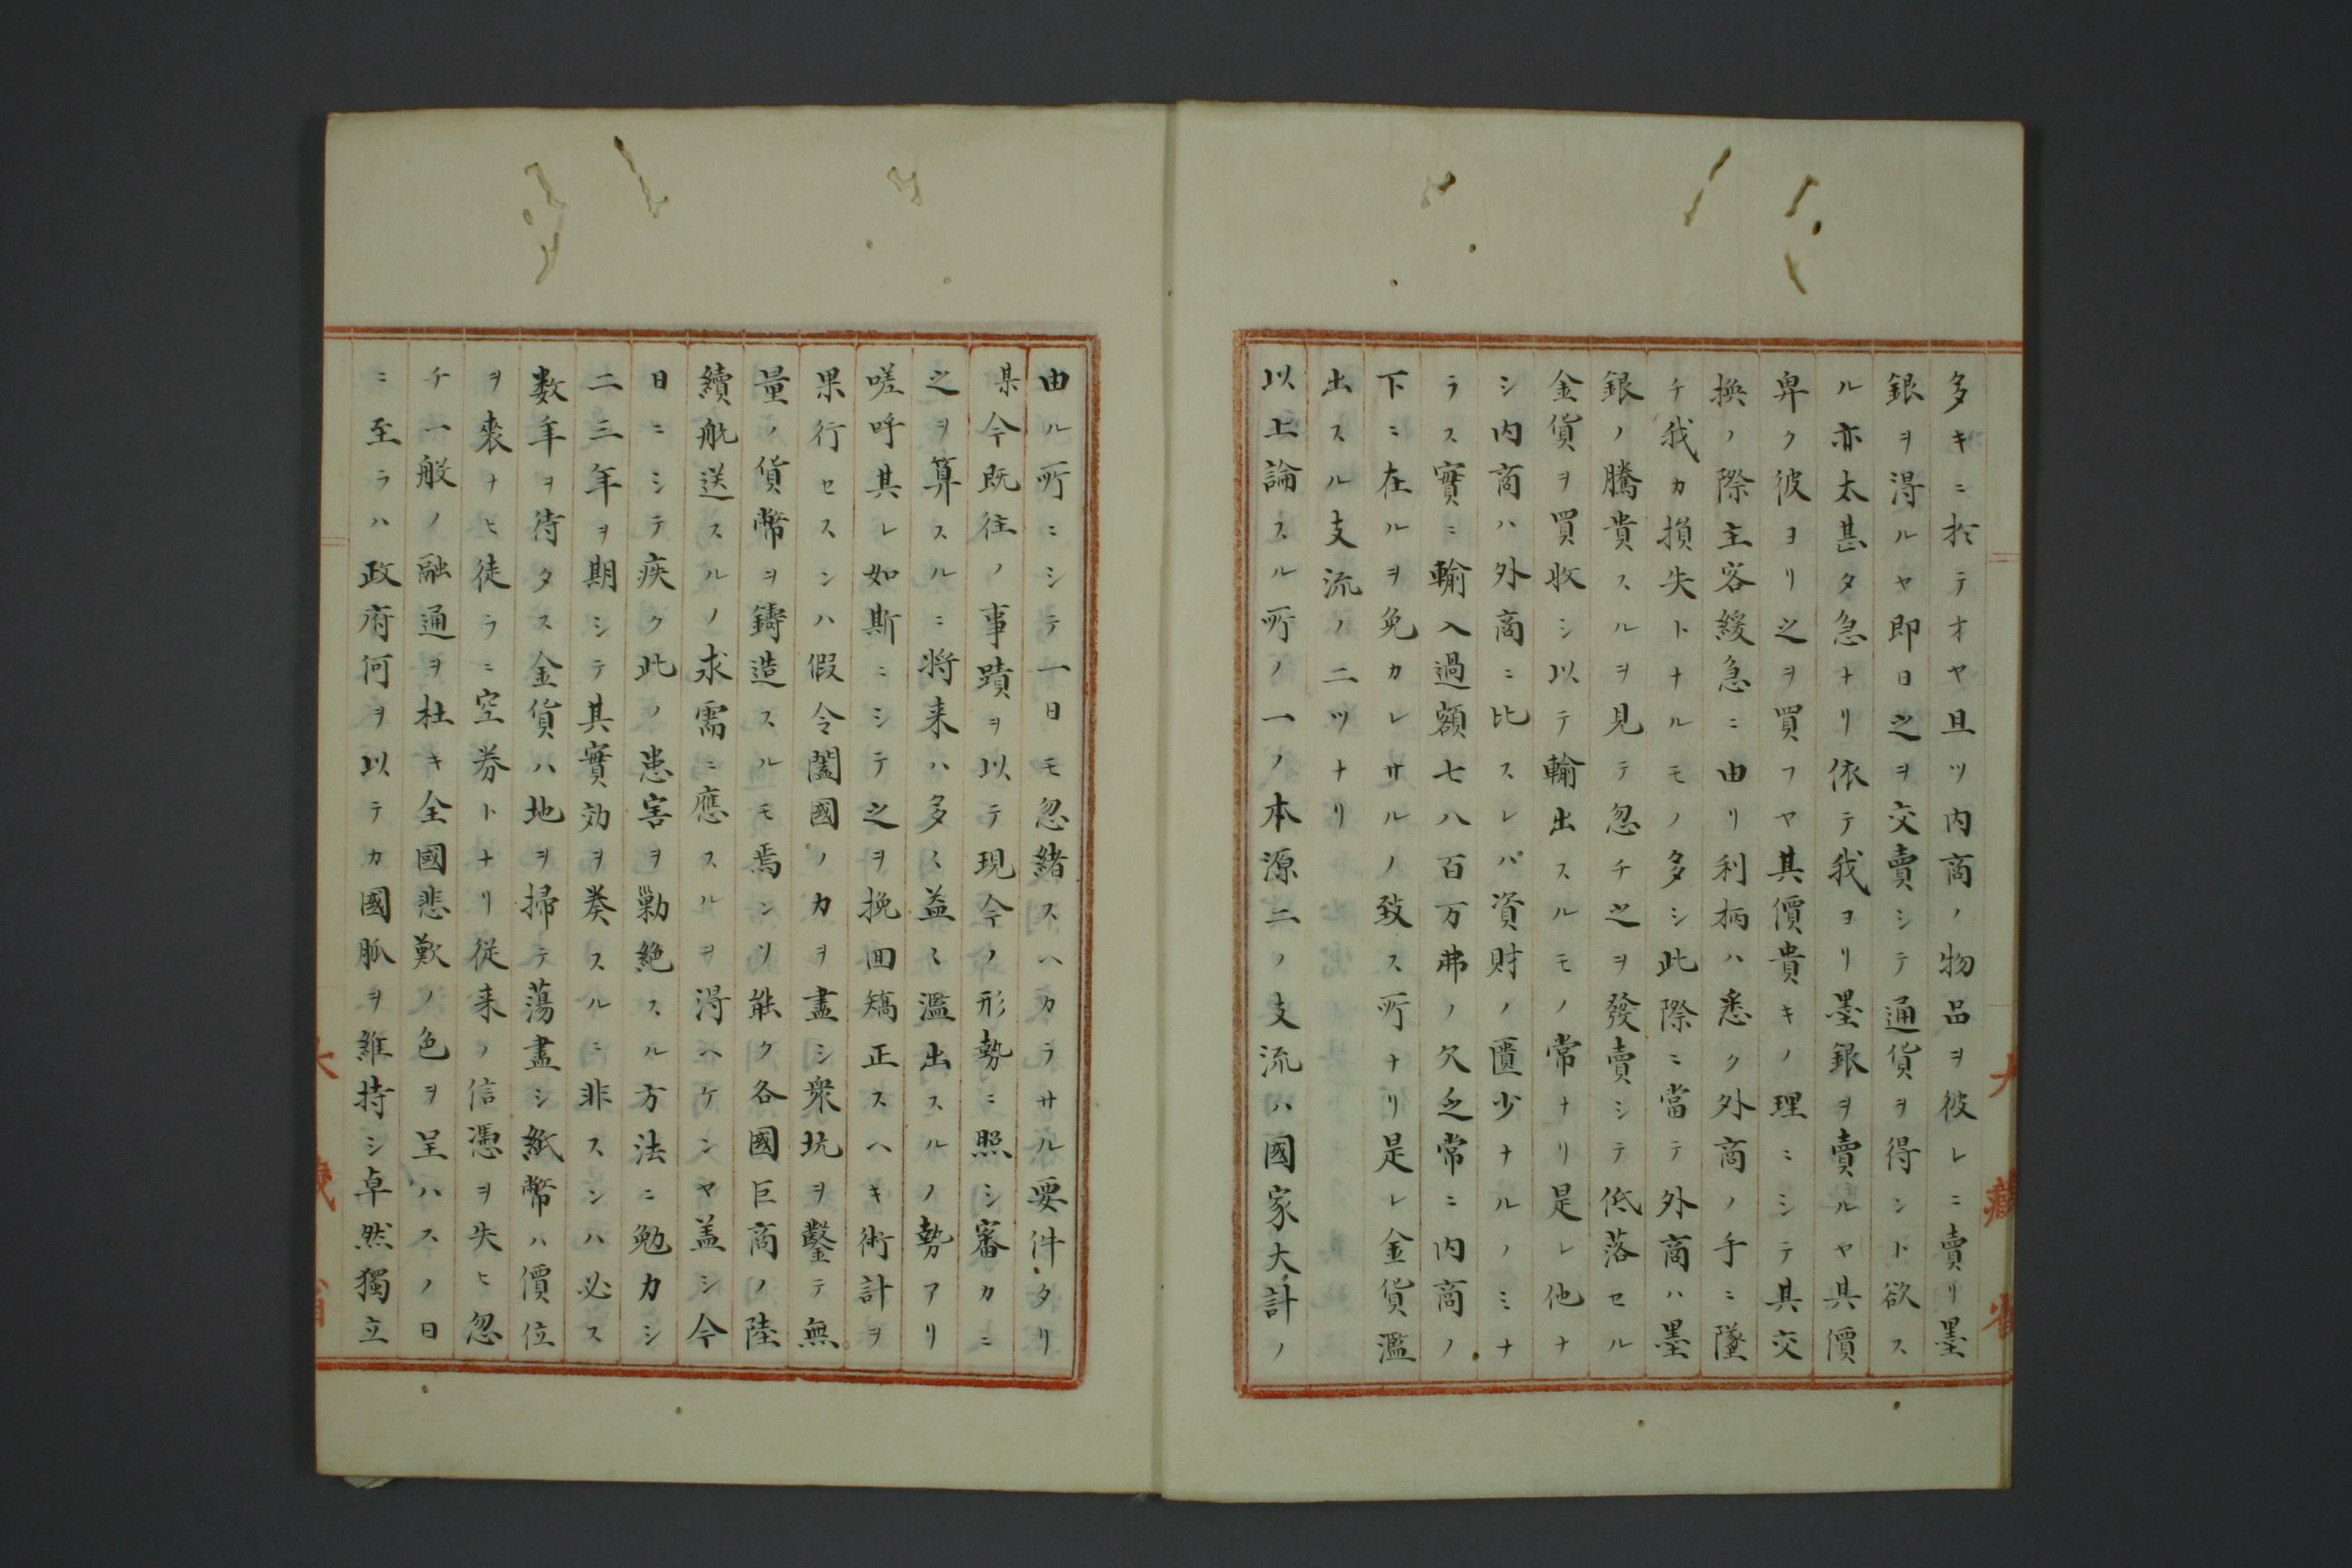 多キニ於テオヤ且ツ内商ノ物品ヲ彼レニ賣リ墨
銀ヲ得ルヤ即日之ヲ交賣シテ通貨ヲ得ント欲ス
ル亦太甚タ急ナリ依テ我ヨリ墨銀ヲ賣ルヤ其價
卑ク彼ヨリ之ヲ買フヤ其價貴キノ理ニシテ其交
換ノ際主客緩急ニ由リ利柄ハ悉ク外商ノ手ニ墜
チ我カ損失トナルモノ多シ此際ニ當テ外商ハ墨
銀ノ騰貴スルヲ見テ忽チ之ヲ發賣シテ低落セル
金貨ヲ買收シ以テ輸出スルモノ常ナリ是レ他ナ
シ内商ハ外商ニ比スレバ資財ノ匱少ナルノミナ
ラス實ニ輸入過額七八百万弗ノ欠乏常ニ内商ノ
下ニ在ルヲ免カレサルノ致ス所ナリ是レ金貨濫
出スル支流ノ二ツナリ
以上論スル所ノ一ノ本源二ノ支流ハ國家大計ノ
大藏省
由ル所ニシテ一日モ忽緒スヘカラサル要件タリ
某今既往ノ事蹟ヲ以テ現今ノ形勢ニ照シ審カニ
之ヲ算スルニ将来ハ多々益々濫出スルノ勢アリ
嗟呼其レ如斯ニシテ之ヲ挽回矯正スヘキ術計ヲ
果行セスンハ假令闔國ノ力ヲ盡シ衆坑ヲ鑿テ無
量ノ貨幣ヲ鑄造スルモ焉ンソ能ク各國巨商ノ陸
續航送スルノ求需ニ應スルヲ得ヘケンヤ盖シ今
日ニシテ疾ク此ノ患害ヲ勦絶スル方法ニ勉力シ
二三年ヲ期シテ其實効ヲ奏スルニ非スンハ必ス
数年ヲ待タス金貨ハ地ヲ掃テ蕩盡シ紙幣ハ價位
ヲ喪ナヒ徒ラニ空券トナリ従来ノ信憑ヲ失ヒ忽
チ一般ノ融通ヲ杜キ全國悲歎ノ色ヲ呈ハスノ日
ニ至ラハ政府何ヲ以テカ國脈ヲ維持シ卓然獨立
大藏省